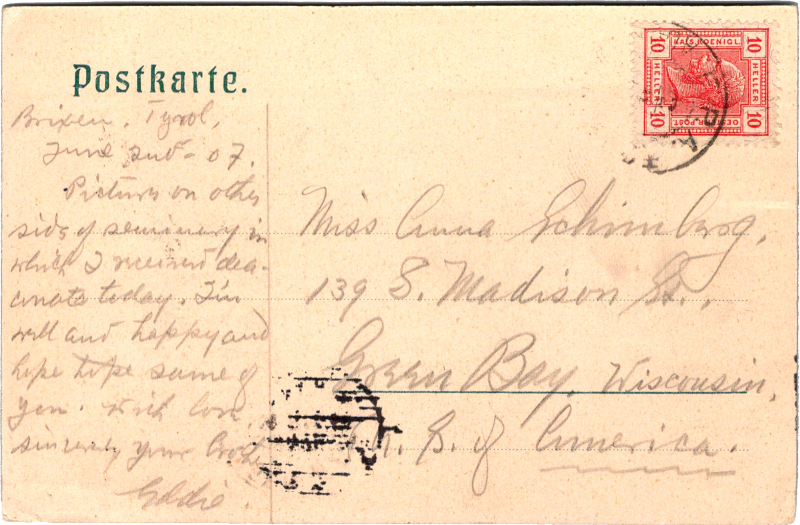 Postkarte.
Brixen. Tyrol,
June 2nd - 07.
Pictures on other
side of seminary in
which I received dea-
conate today. I'm
well and happy and
hope hope same of
you. With love
sincerely your Brother
Eddie.
KAIS. KOENIGL.
10 HELLER 10
10 HELLER 10
OESTERR. POST
Miss Anna Schimberg,
139 S. Madison St.,
Green Bay, Wisconsin,
U. S. of America.